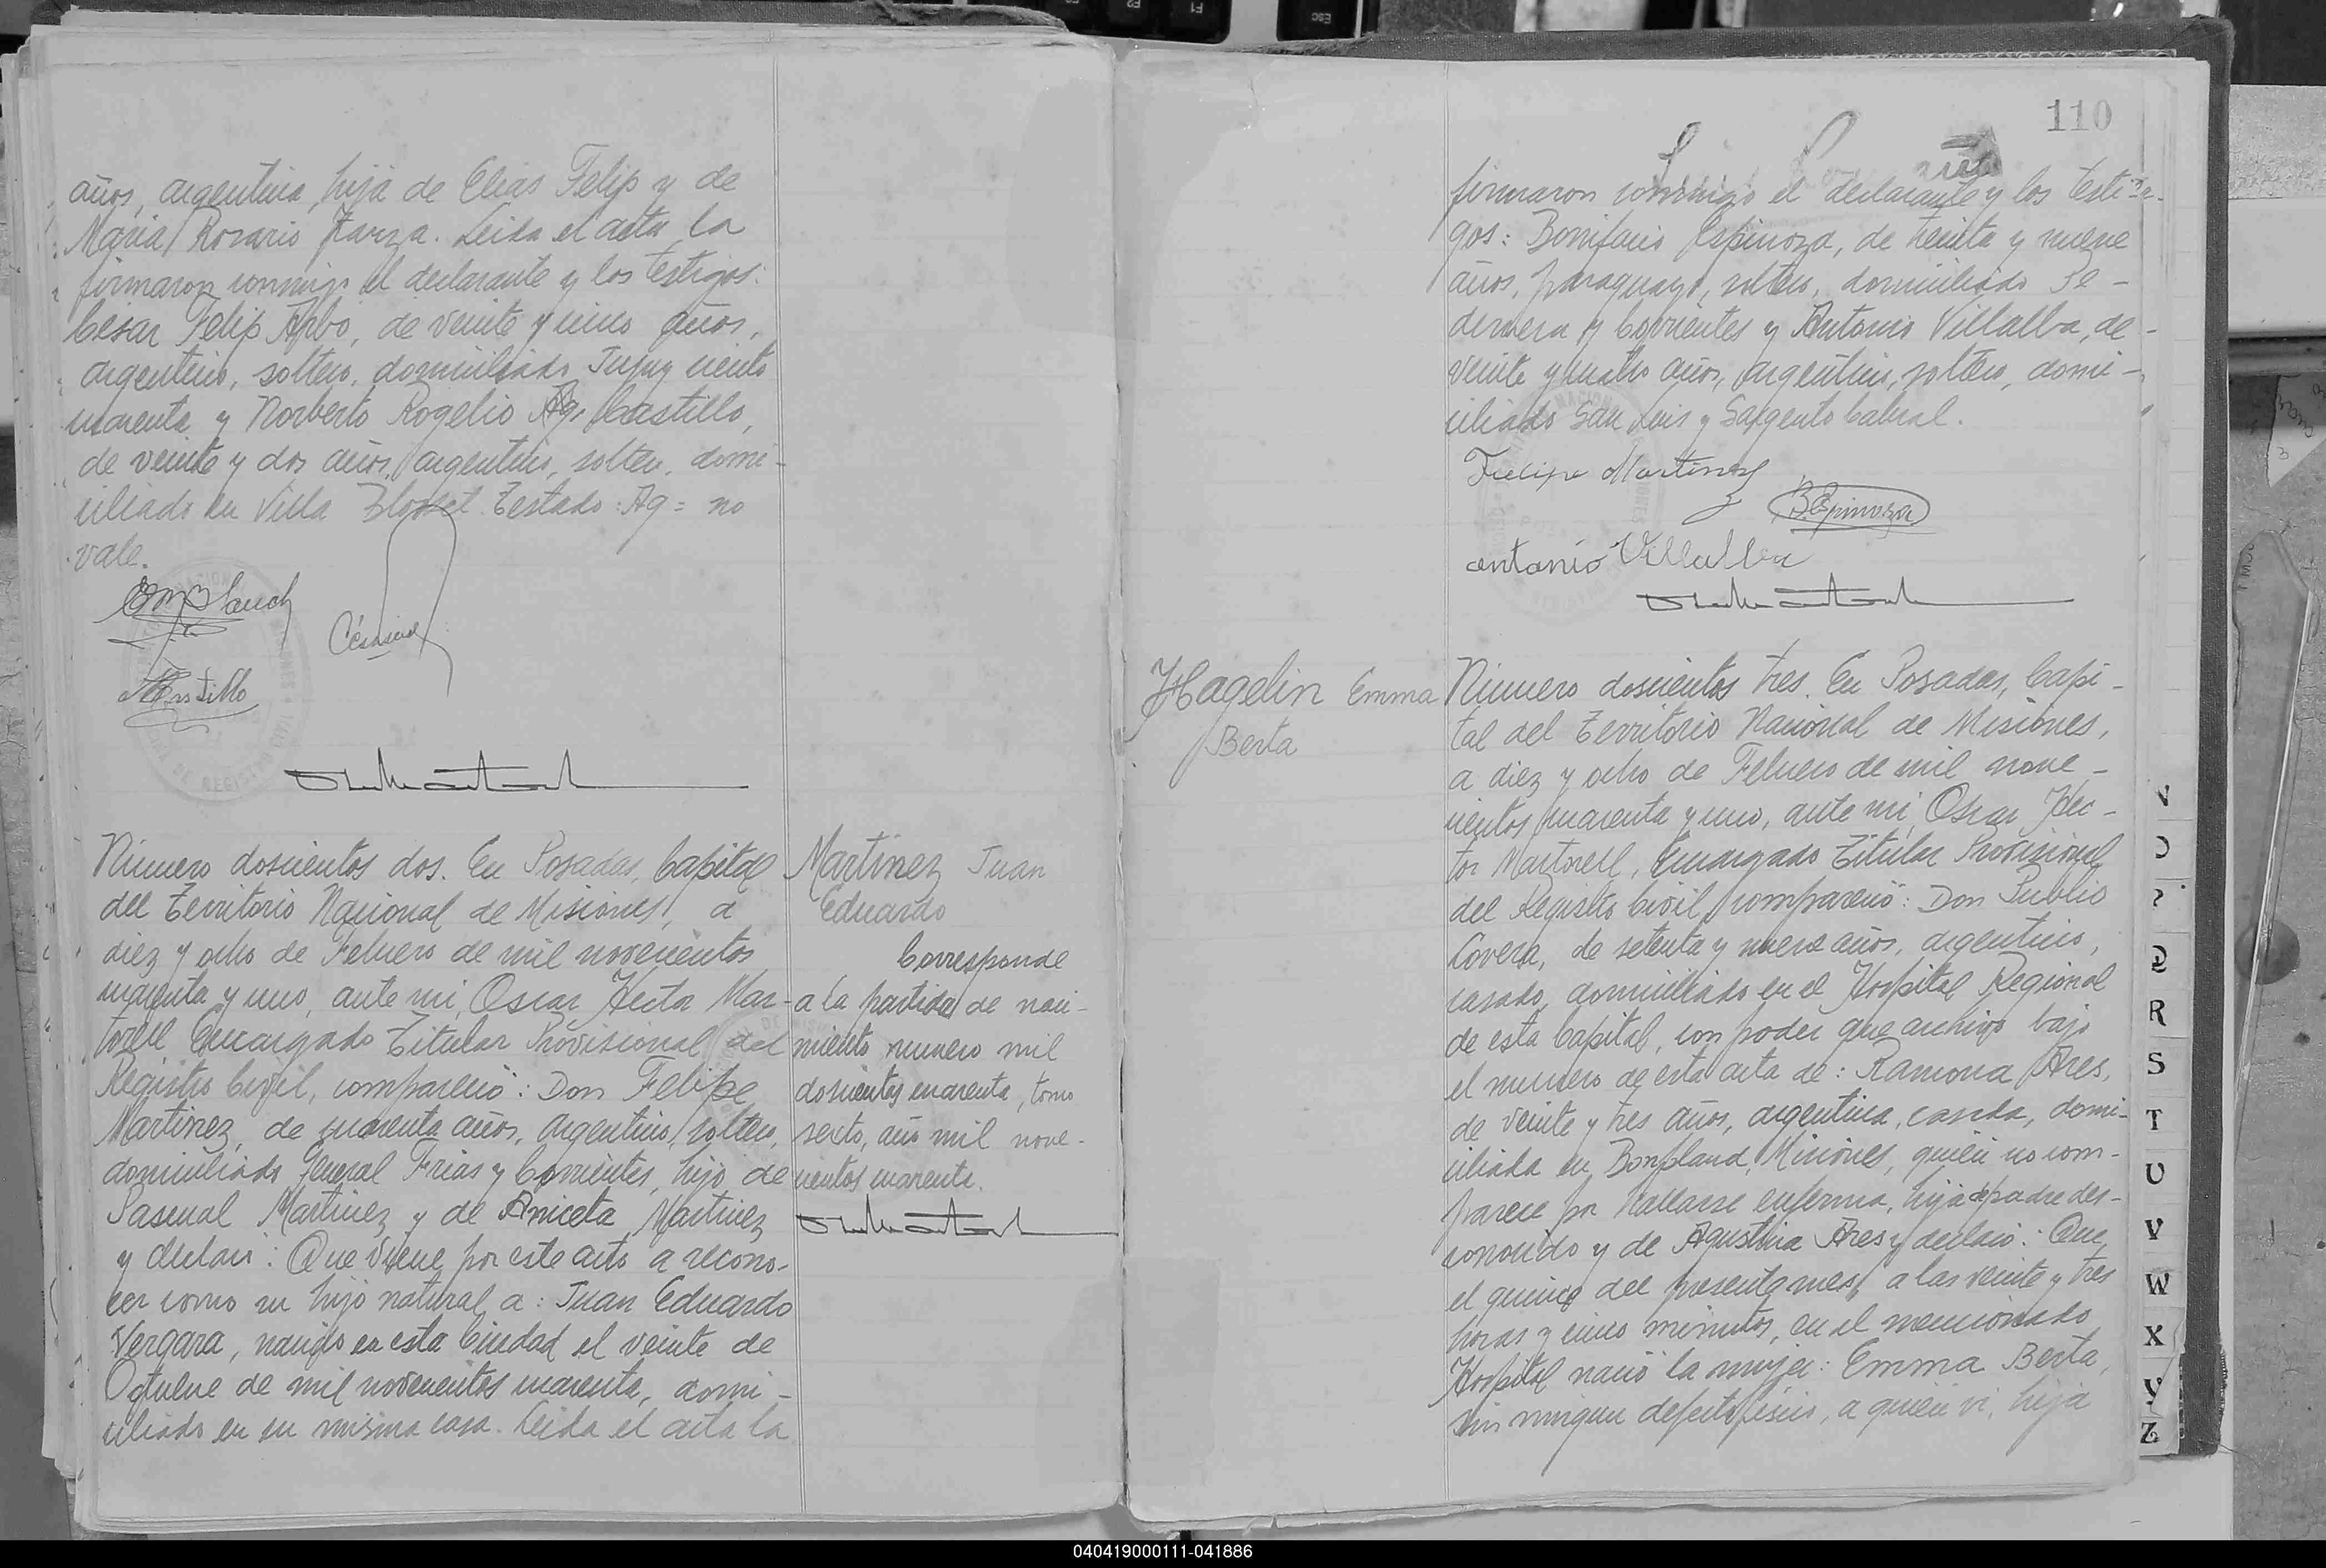 años, argentina, hija de Elias Felip y de
Maria Rosario Zarza. Leida el acta la
firmaron conmigo el declarante y los testigos:
Cesar Felip Arbo, de veinte y cinco años,
argentino, soltero, domiciliado Jujuy ciento
cuarenta y Norberto Rogelio Ag. Castillo,
de veinte y dos años, argentino, soltero, domi-
ciliado en Villa Blosset. Testado: Ag = no
vale.
Castillo
Número doscientos dos. En Posadas, Capital
del Territorio Nacional de Misiones, a
diez y ocho de Febrero de mil novecientos
cuarenta y uno, ante mi, Oscar Hector Mar-
torell Encargado Titular Provisional del
Registro Civil, compareció: Don Felipe
Martinez, de cuarenta años, argentino, soltero,
domiciliado General Frias y Corrientes, hijo de
Pascual Martinez y de Aniceta Martinez
y declaró: Que viene por este acto a recono-
cer como su hijo natural a: Juan Eduardo
Vergara, nacido en esta Ciudad el veinte de
Octubre de mil novecientos cuarenta, domi-
ciliado en su misma casa. Leida el acta la
Martinez Juan
Eduardo
Corresponde
a la partida de naci-
miento numero mil
doscientos cuarenta, tomo
sexto, año mil nove-
cientos cuarenta.
110
firmaron conmigo el declarante y los testi-
gos: Bonifacio Espinoza, de treinta y nueve
años, paraguayo, soltero, domiciliado Pe-
dernera y Corrientes y Antonio Villalba, de
veinte y cuatro años, argentino, soltero, domi-
ciliado San Luis y Sargento Cabral.
Felipe Martinez
B. Espinoza
antonio Villalba
Hagelin Emma
Berta
Número doscientos tres. En Posadas, Capi-
tal del Territorio Nacional de Misiones,
a diez y ocho de Febrero de mil nove-
cientos cuarenta y uno, ante mi, Oscar Hec-
tor Martorell, Encargado Titular Provisional
del Registro Civil, compareció: Don Publio
Lovera, de setenta y nueve años, argentino,
casado, domiciliado en el Hospital Regional
de esta Capital, con poder que archivo bajo
el numero de esta acta de: Ramona Ares,
de veinte y tres años, argentina, casada, domi-
ciliada en Bonpland, Misiones, quien no com-
parece por hallarse enferma, hija de padre des-
conocido y de Agustina Ares y declaró: Que
el quince del presente mes, a las veinte y tres
horas y cinco minutos, en el mencionado
Hospital nació la mujer: Emma Berta,
sin ningun defecto fisico, a quien vi, hija
Q
R
S
T
U
V
W
X
Y
Z
040419000111-041886